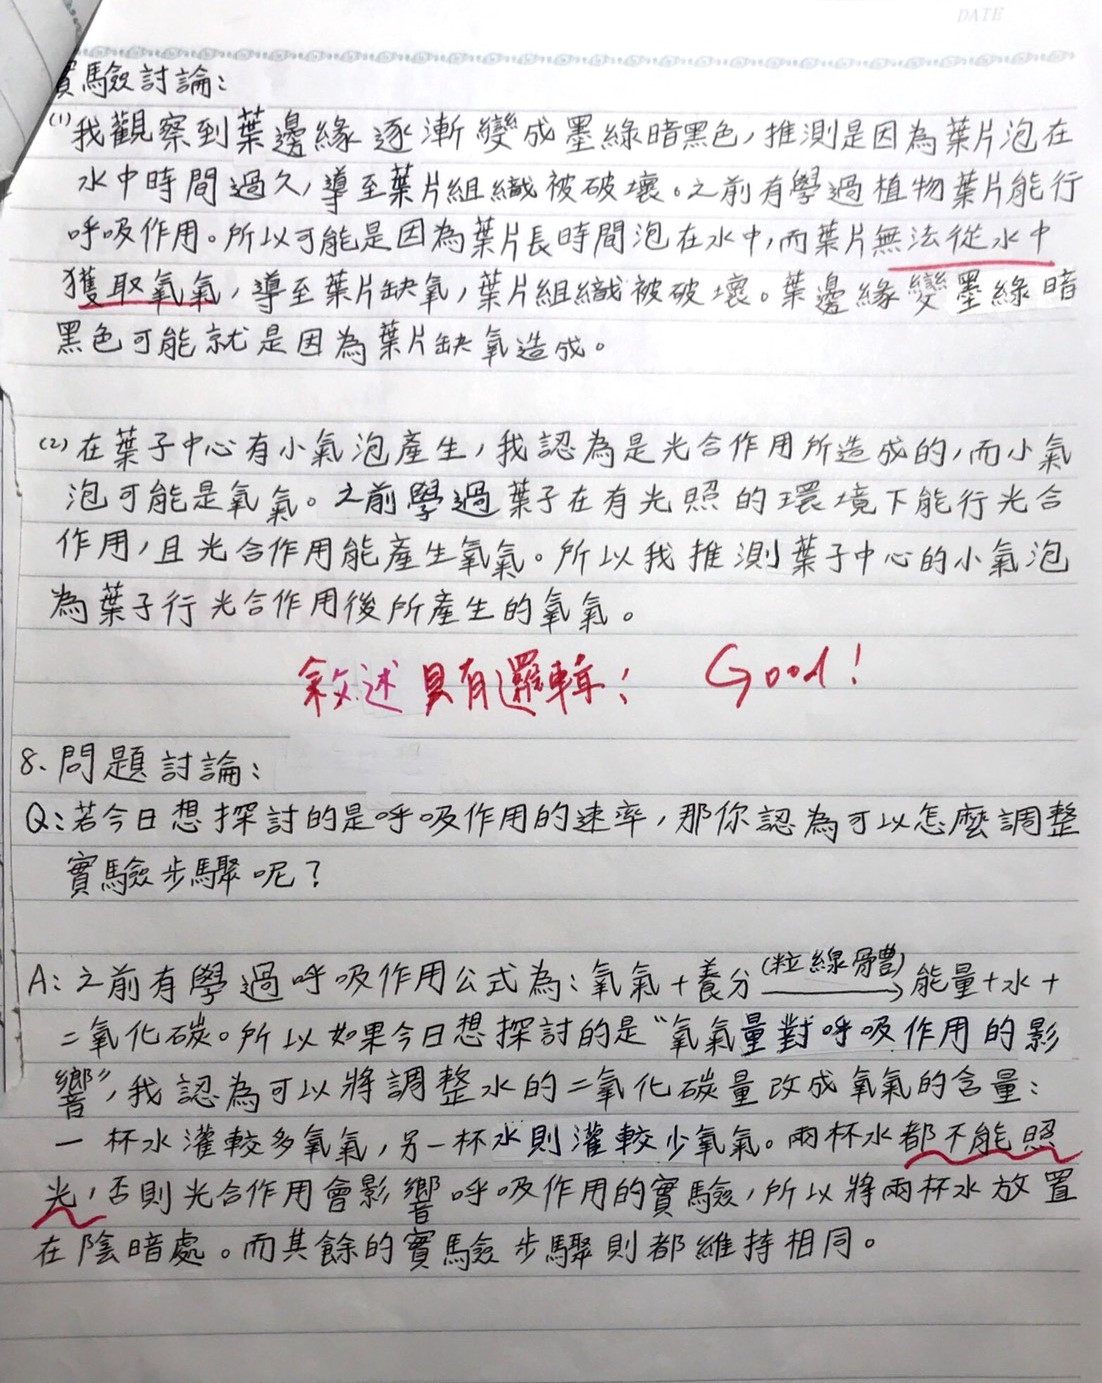 DATE
實驗討論：
(1)我觀察到葉邊緣逐漸變成墨綠暗黑色，推測是因為葉片泡在
水中時間過久，導至葉片組織被破壞。之前有學過植物葉片能行
呼吸作用。所以可能是因為葉片長時間泡在水中，而葉片無法從水中
獲取氧氣，導至葉片缺氧，葉片組織被破壞。葉邊緣變墨綠暗
黑色可能就是因為葉片缺氧造成。
(2)在葉子中心有小氣泡產生，我認為是光合作用所造成的，而小氣
泡可能是氧氣。之前學過葉子在有光照的環境下能行光合
作用，且光合作用能產生氧氣。所以我推測葉子中心的小氣泡
為葉子行光合作用後所產生的氧氣。
敘述具有邏輯！ Good!
8、問題討論：
Q：若今日想探討的是呼吸作用的速率，那你認為可以怎麼調整
實驗步驟呢？
A：之前有學過呼吸作用公式為：氧氣+養分 (粒線體)→ 能量+水+
二氧化碳。所以如果今日想探討的是"氧氣量對呼吸作用的影
響"，我認為可以將調整水的二氧化碳量改成氧氣的含量：
一杯水灌較多氧氣，另一杯水則灌較少氧氣。兩杯水都不能照
光，否則光合作用會影響呼吸作用的實驗，所以將兩杯水放置
在陰暗處。而其餘的實驗步驟則都維持相同。